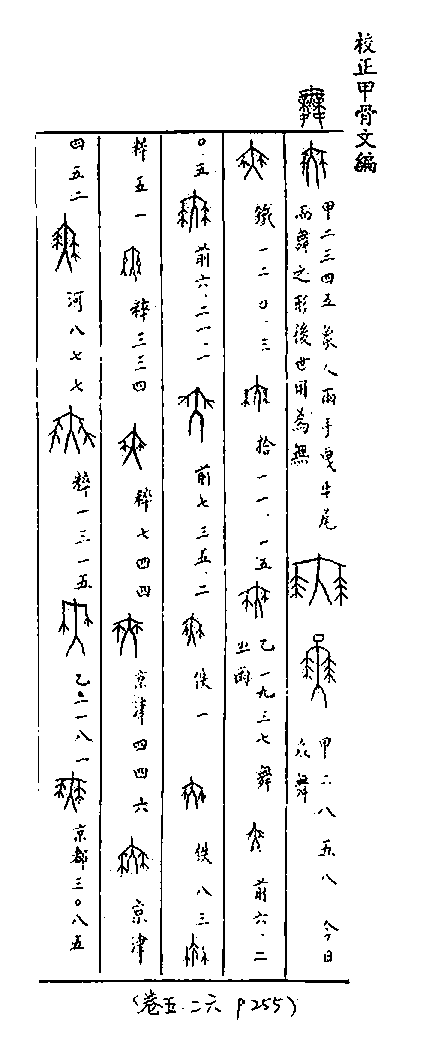 校正甲骨文編
舞
甲二三四五 象人兩手曳牛尾
而舞之形後世用為無
甲二八五八 今日
众舞
鐵一二〇.三 拾一一.一五 乙一九三七 舞 前六.二
㞢雨
〇.五 前六.二一.一 前七三五.二 佚一 佚八三
粹五一 粹三三四 粹七四四 京津四四六 京津
四五二 河八七七 粹一三一五 乙二一八一 京都三〇八五
(卷五.二六 P255)